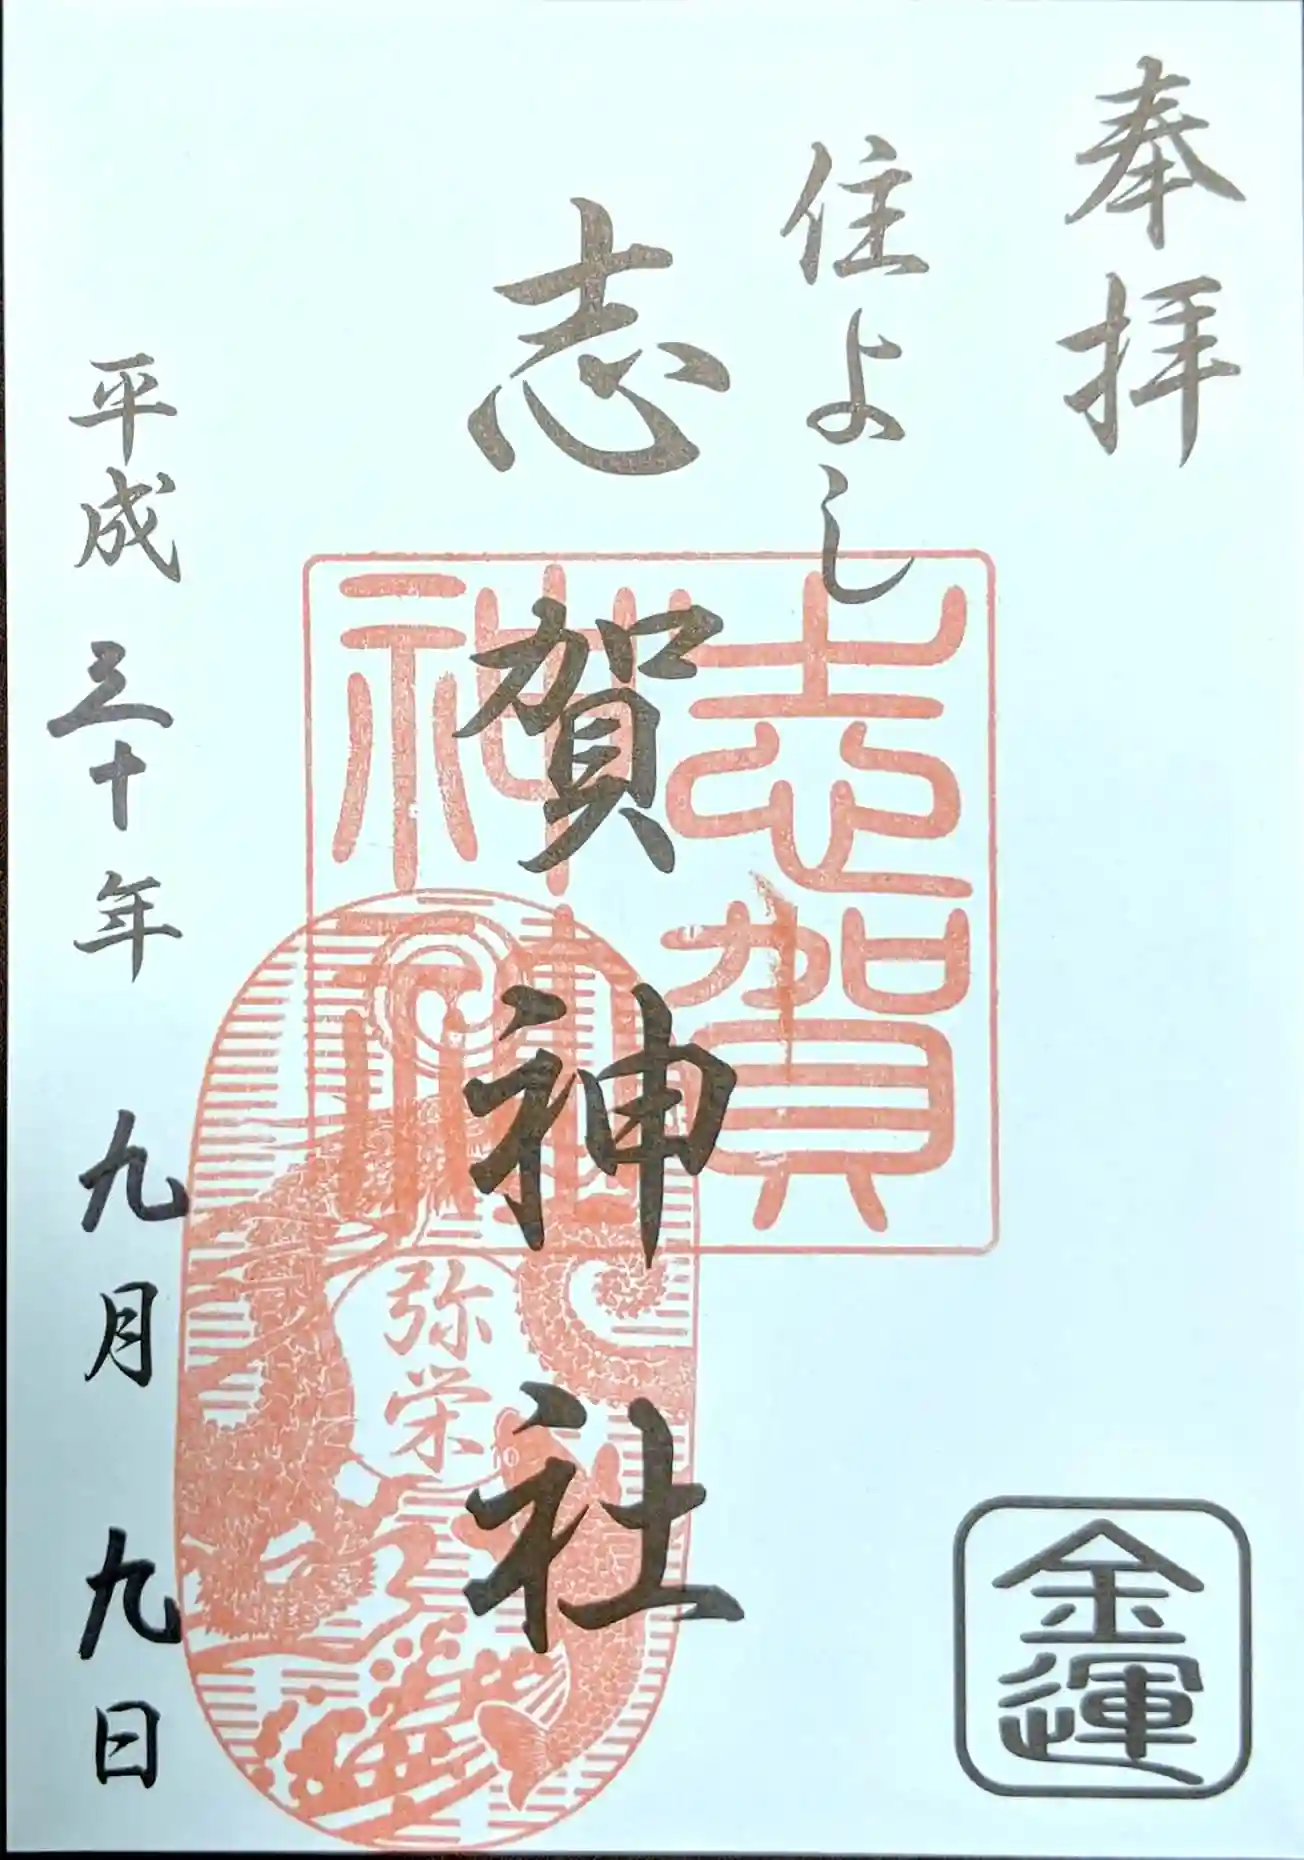 奉拝
住よし
志賀神社
平成三十年九月九日
志賀
神社
弥栄
金運